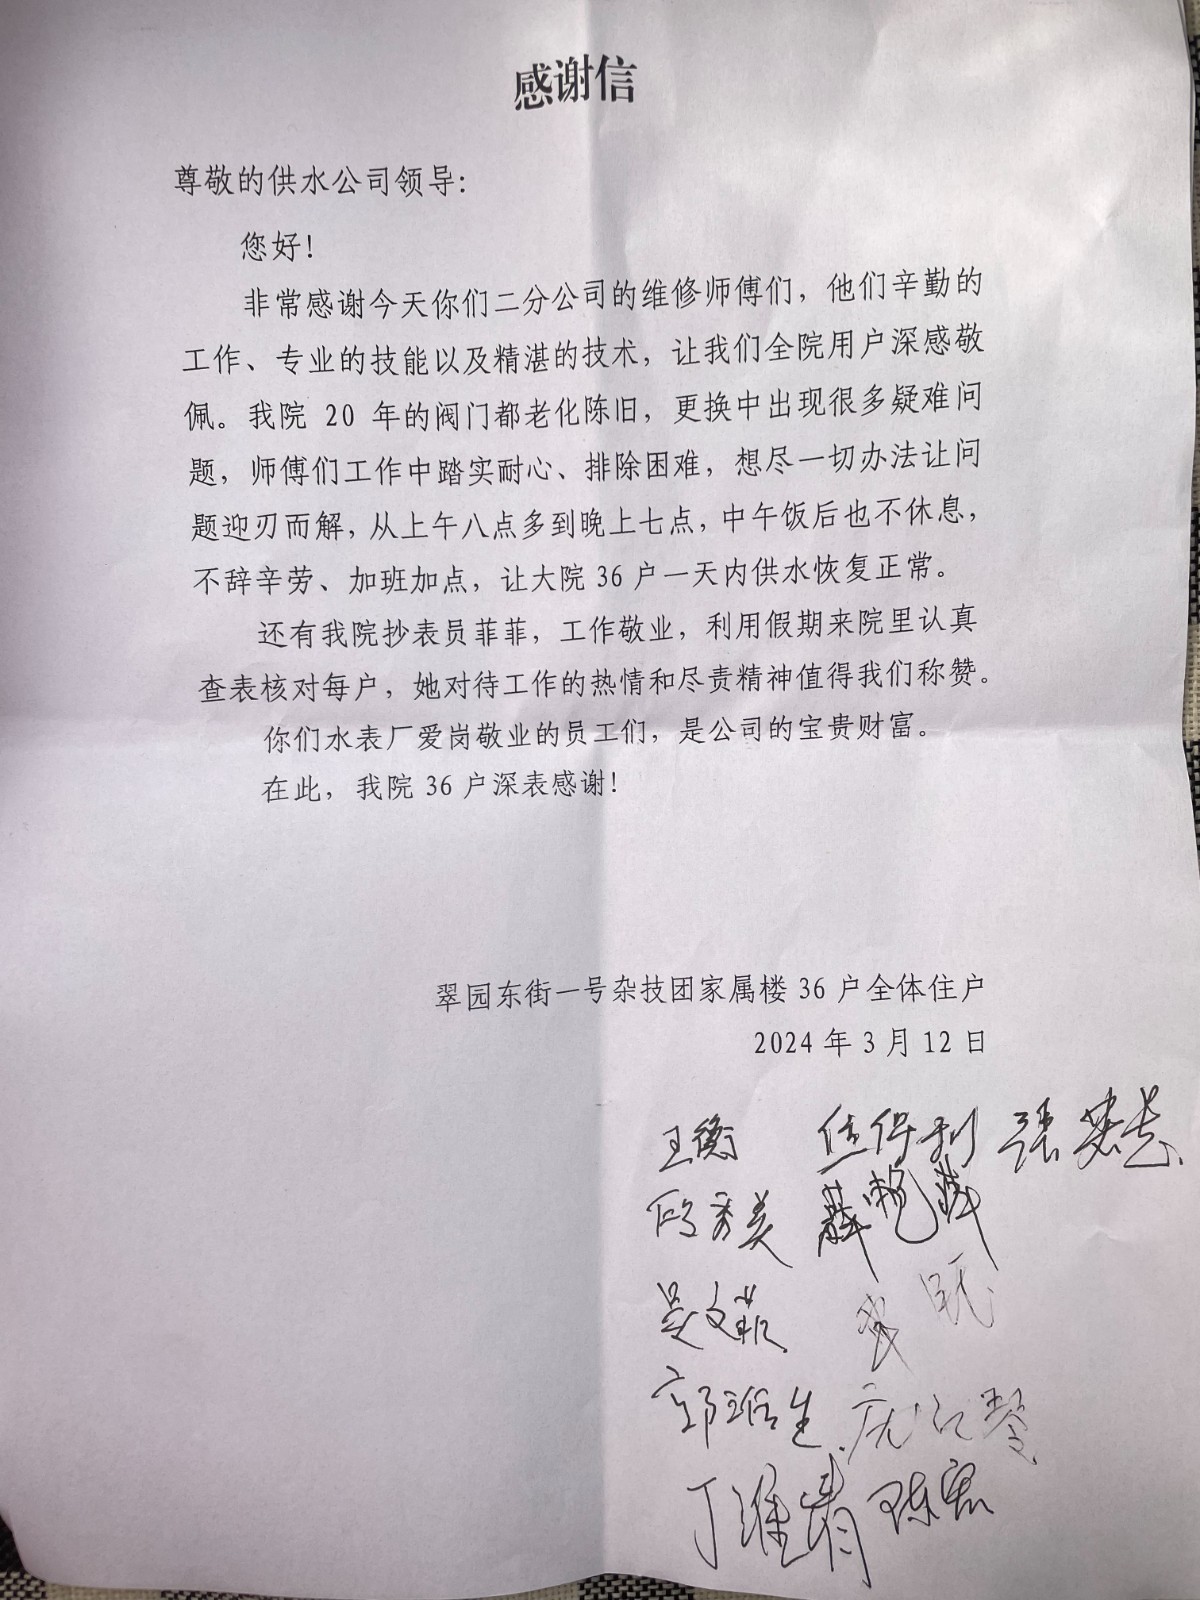 感谢信
尊敬的供水公司领导:
您好!
非常感谢今天你们二分公司的维修师傅们，他们辛勤的
工作、专业的技能以及精湛的技术，让我们全院用户深感敬
佩。我院 20 年的阀门都老化陈旧，更换中出现很多疑难问
题，师傅们工作中踏实耐心、排除困难，想尽一切办法让问
题迎刃而解，从上午八点多到晚上七点，中午饭后也不休息，
不辞辛劳、加班加点，让大院 36 户一天内供水恢复正常。
还有我院抄表员菲菲，工作敬业，利用假期来院里认真
查表核对每户，她对待工作的热情和尽责精神值得我们称赞。
你们水表厂爱岗敬业的员工们，是公司的宝贵财富。
在此，我院 36 户深表感谢!
翠园东街一号杂技团家属楼 36 户全体住户
2024 年 3 月 12 日
王衡
邱秀美
吴文菲